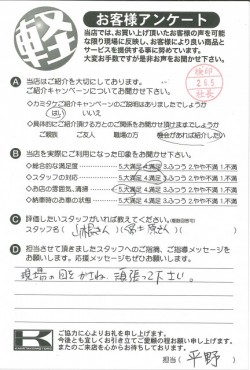 軽
お客様アンケート
当店では、お買い上げ頂いたお客様の声を可能
な限り現場に反映し、お客様により良い商品と
サービスを提供する事に努めています。
大変お手数ですが是非お声をお聞かせ下さい。
検印
社長
A 当店はご紹介を大切にしております。
ご紹介キャンペーンについてお聞かせ下さい。
◇カミタケご紹介キャンペーンのご説明はありましたでしょうか
はい いいえ
◇具体的にご紹介頂ける方とのご関係をお聞かせ頂けますでしょうか
ご親族 ご友人 職場の方 機会があれば紹介したい
B 当店を実際にご利用になった印象をお聞かせ下さい。
◇総合的な満足度 5.大満足 4.満足 3.ふつう 2.やや不満 1.不満
◇スタッフの対応 5.大満足 4.満足 3.ふつう 2.やや不満 1.不満
◇お店の雰囲気、清掃 5.大満足 4.満足 3.ふつう 2.やや不満 1.不満
◇納車時のお車の状態 5.大満足 4.満足 3.ふつう 2.やや不満 1.不満
C 評価したいスタッフがいれば教えてください。(複数回答可)
スタッフ名( 山根さん )( 富士原さん )
D 担当させて頂きましたスタッフへのご感想、ご指導メッセージを
お願いします。応援メッセージもぜひお願いします。
頑張って下さい。
K
ご協力に心よりお礼を申し上げます。
今後とも宜しくお引き立てご愛顧の程お願い申し上げます。
またのご来店を心からお待ちしております。
担当( 平野 )